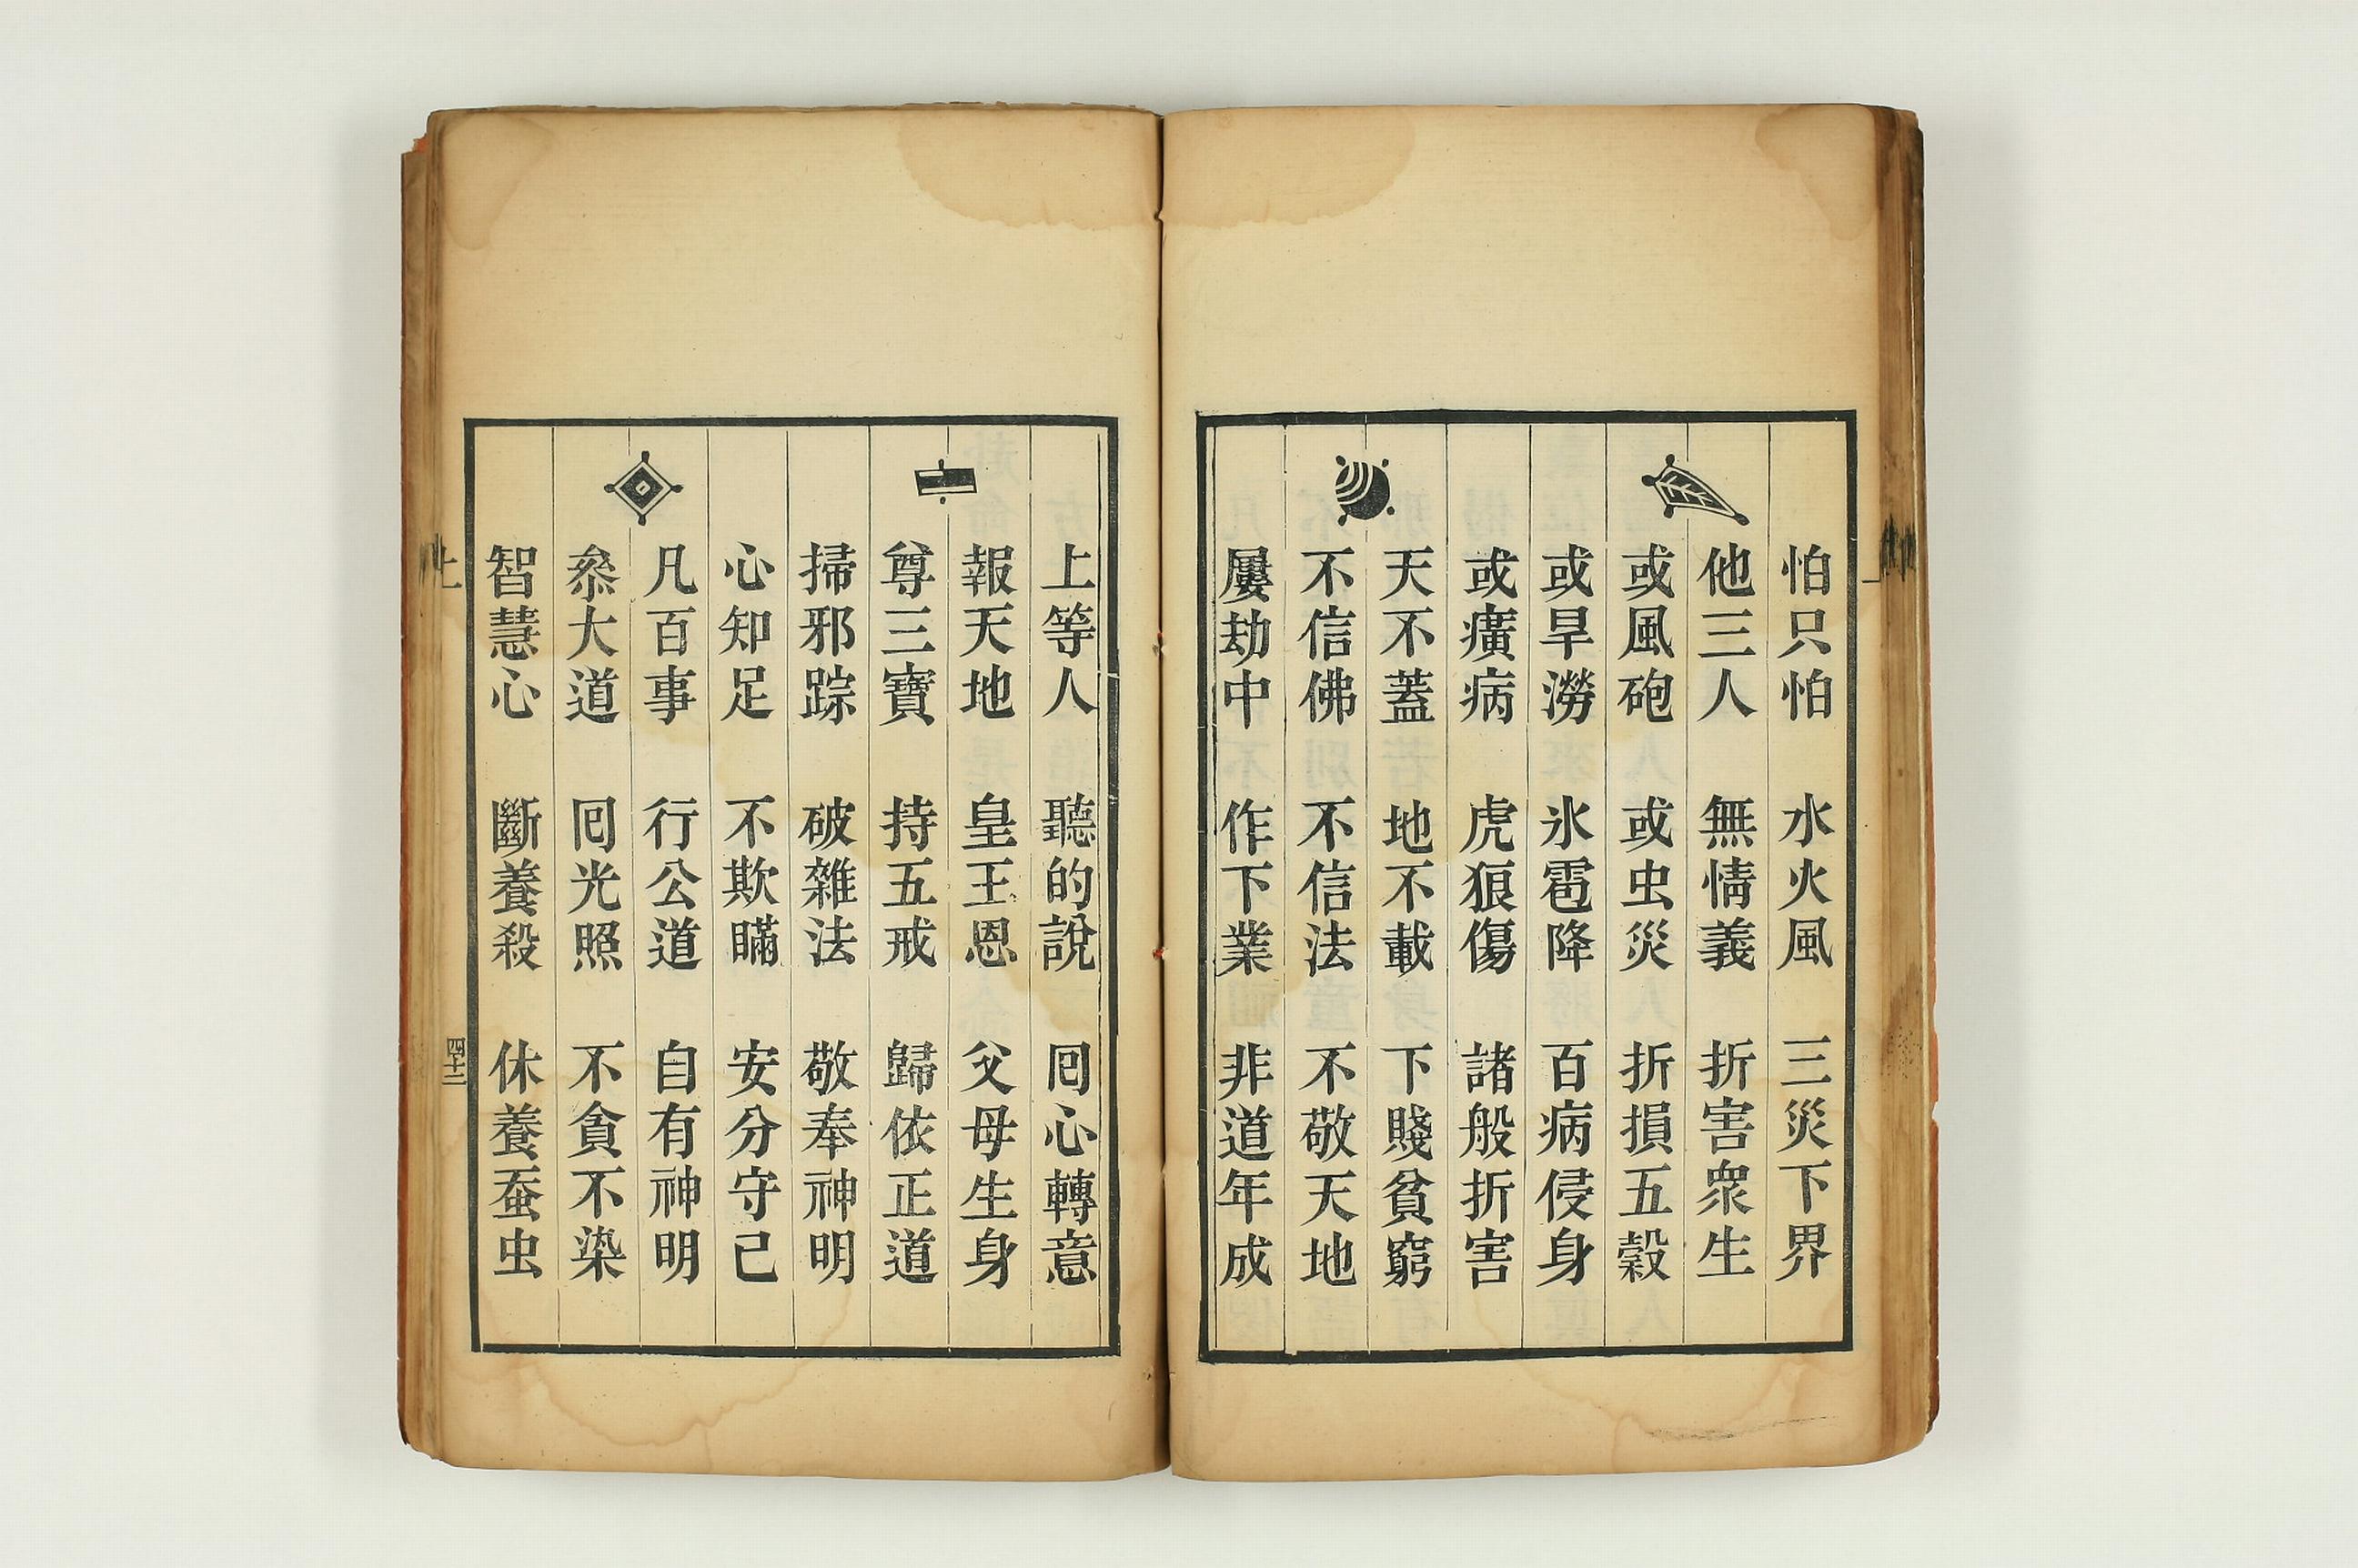 怕只怕　水火風　三災下界
他三人　無情義　折害衆生
或風砲　或虫災　折損五穀
或旱澇　氷雹降　百病侵身
或癀病　虎狼傷　諸般折害
天不蓋　地不載　下賤貧窮
不信佛　不信法　不敬天地
屢劫中　作下業　非道年成
上等人　聽的說　囘心轉意
報天地　皇王恩　父母生身
尊三寶　持五戒　歸依正道
掃邪踪　破雜法　敬奉神明
心知足　不欺瞞　安分守己
凡百事　行公道　自有神明
叅大道　囘光照　不貪不染
智慧心　斷養殺　休養蚕虫
四十三